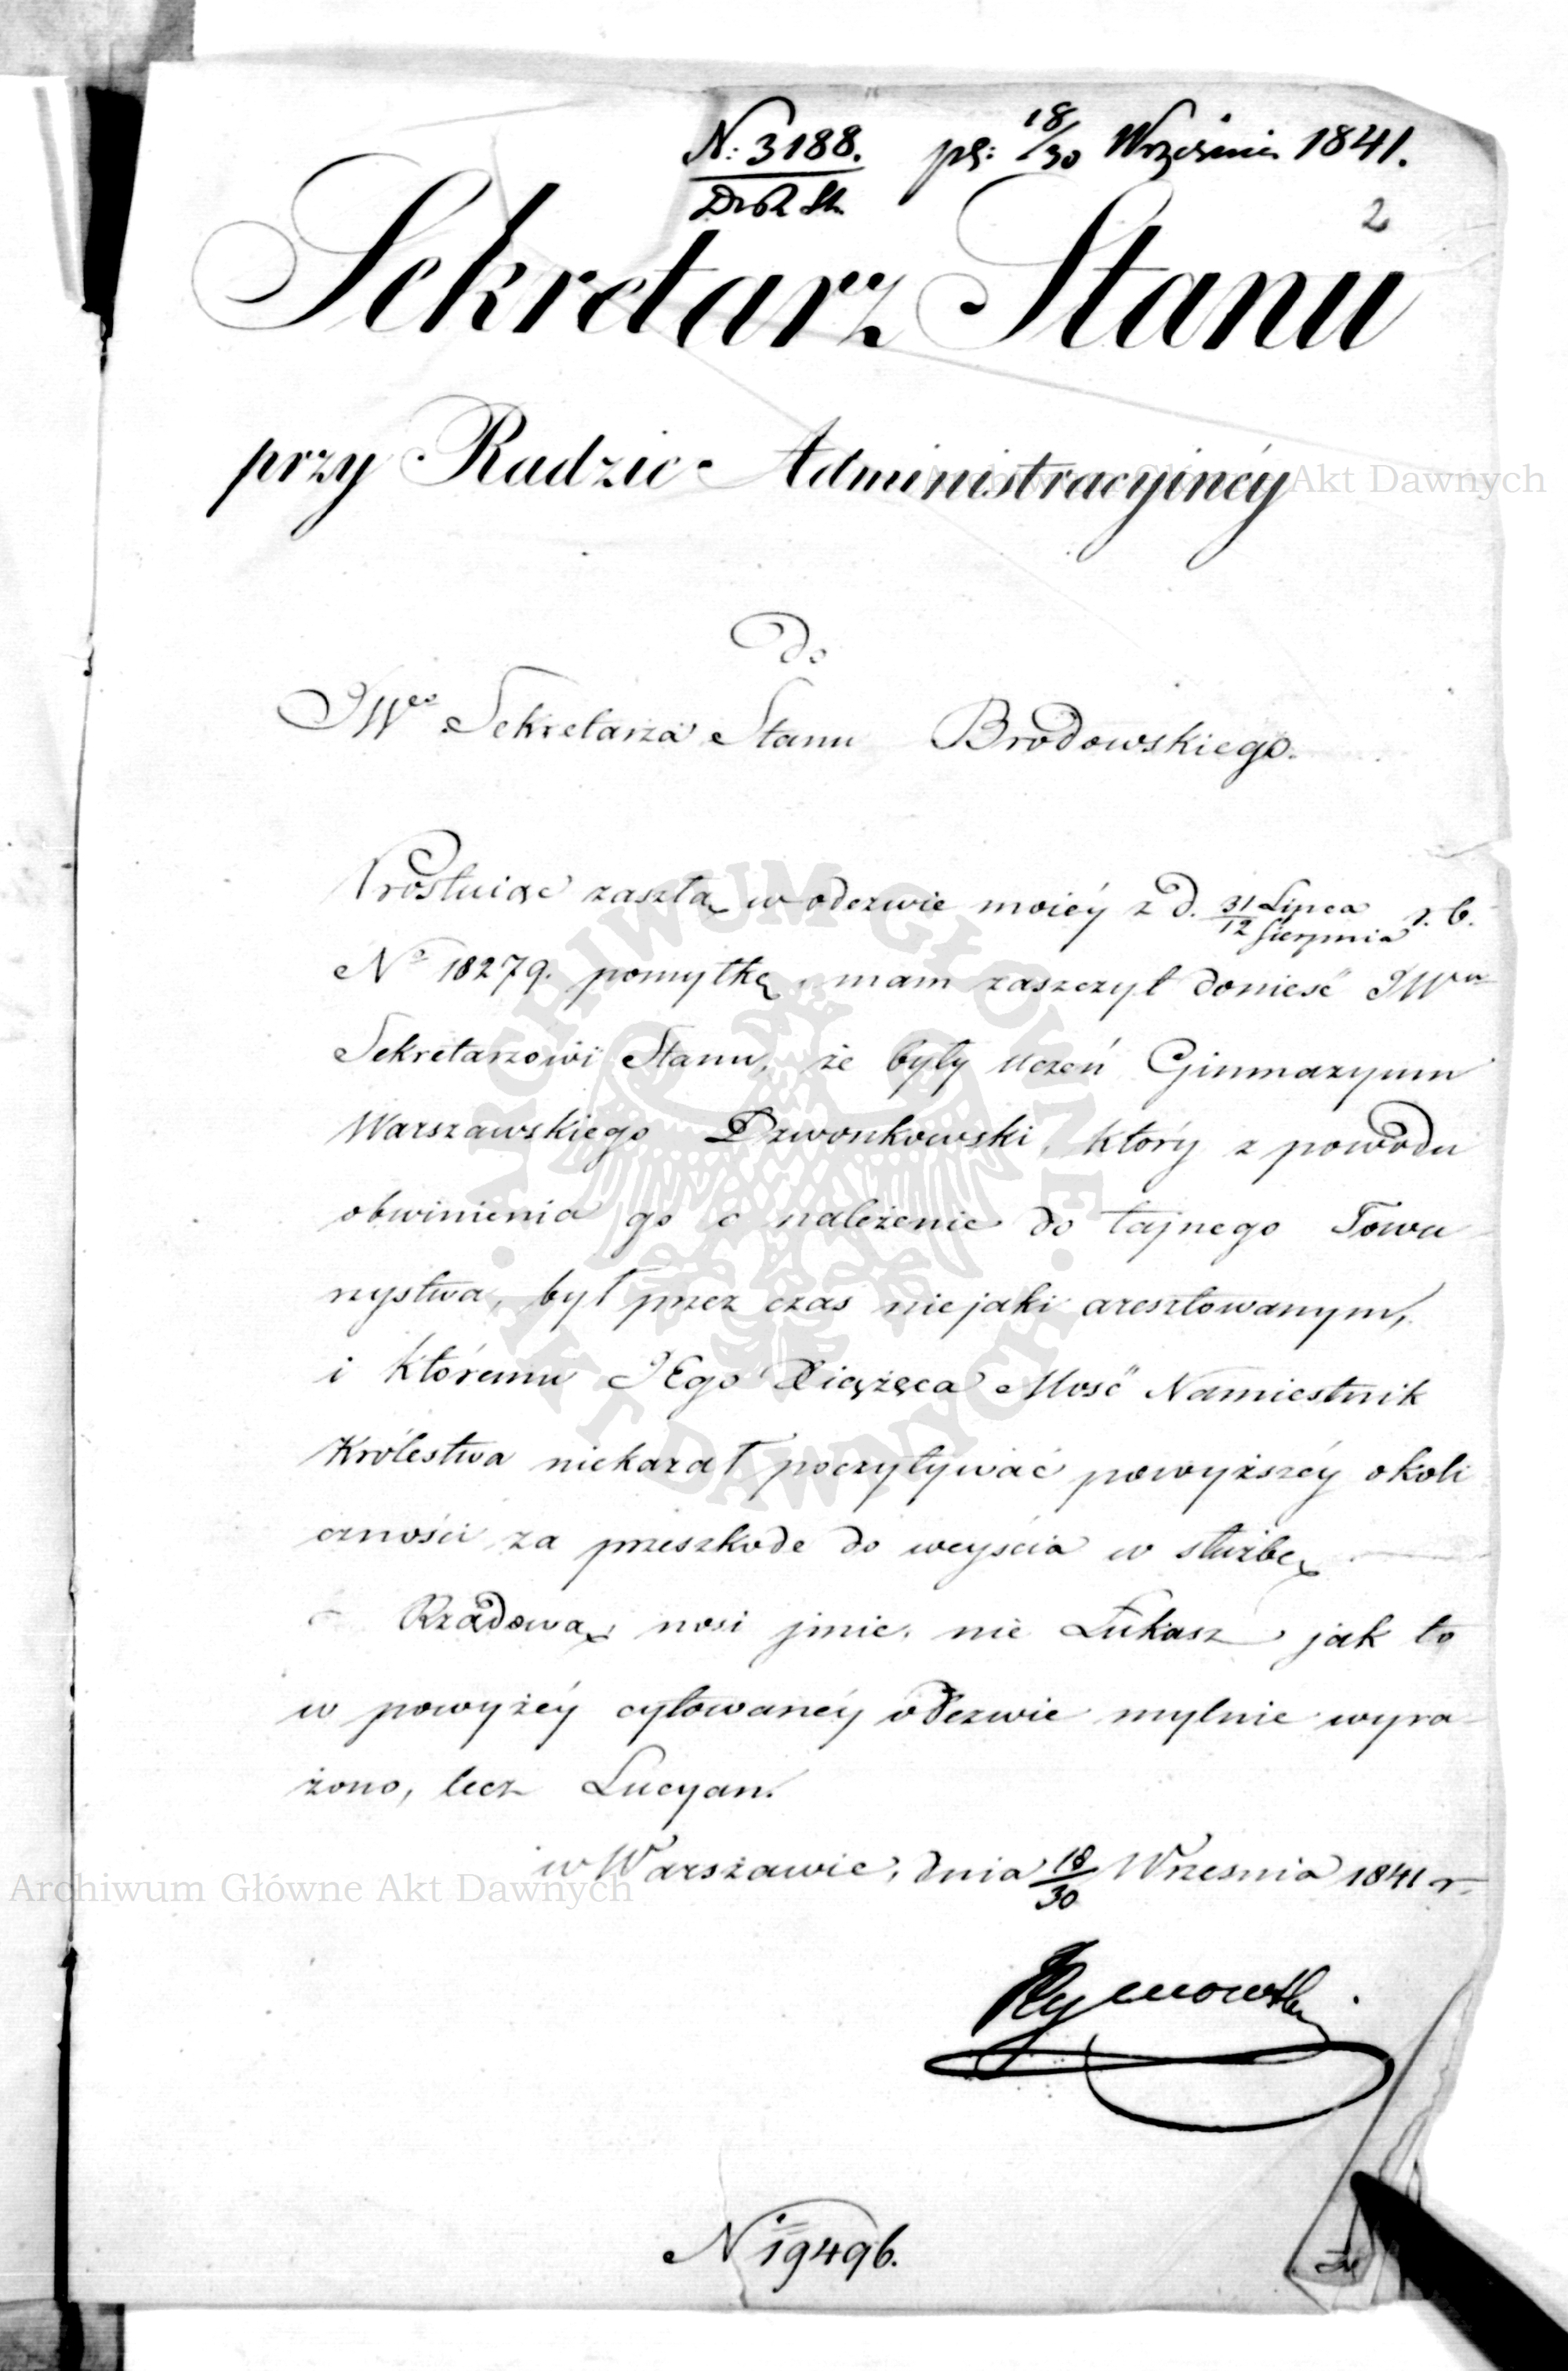 N: 3188. pś: 18/30 Września 1841.
2
Sekretarz Stanu
przy Radzie Administracyinéy
Archiwum Główne Akt Dawnych
Do
JWgo Sekretarza Stanu Brodowskiego.
Prostuiąc zaszłą w odezwie moiéy z d. 31 Lipca / 12 Sierpnia r. b.
No 18279. pomyłkę, mam zaszczyt donieść JWu
Sekretarzowi Stanu, że były uczeń Gimnazyum
Warszawskiego Dzwonkowski, który z powodu
obwinienia go o należenie do tajnego Towa
rzystwa, był przez czas niejaki aresztowanym,
i któremu JEgo Xiążęca Mość Namiestnik
Królestwa niekazał poczytywać powyższéy okoli
czności za przeszkodę do weyścia w służbę
Rządową, nosi jmie, nie Łukasz jak to
w powyżéy cytowanéy odezwie mylnie wyra-
żono, lecz Lucyan.
w Warszawie, dnia 18/30 Wrzesnia 1841 r.
Archiwum Główne Akt Dawnych
N 19496.
ARCHIWUM GŁÓWNE
AKT DAWNYCH